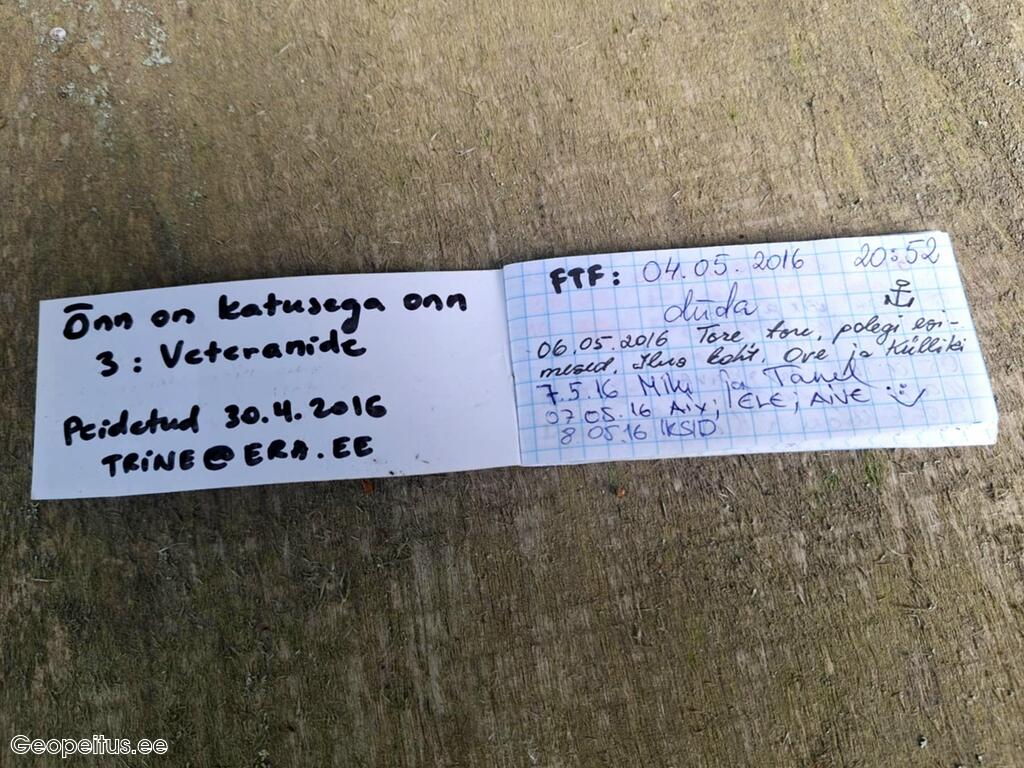 Õnn on katusega onn
3: Veteranide
Peidetud 30.4.2016
TRINE@ERA.EE
FTF: 04.05.2016 20:52
duda
06.05.2016 Tore, tore, polegi esi-
mesed. Ilus koht. Ove ja Külliki
7.5.16 Miku ja Tanel
07 05.16 Aix; ELE; AIVE
8 05.16 IKSID
Geopeitus.ee